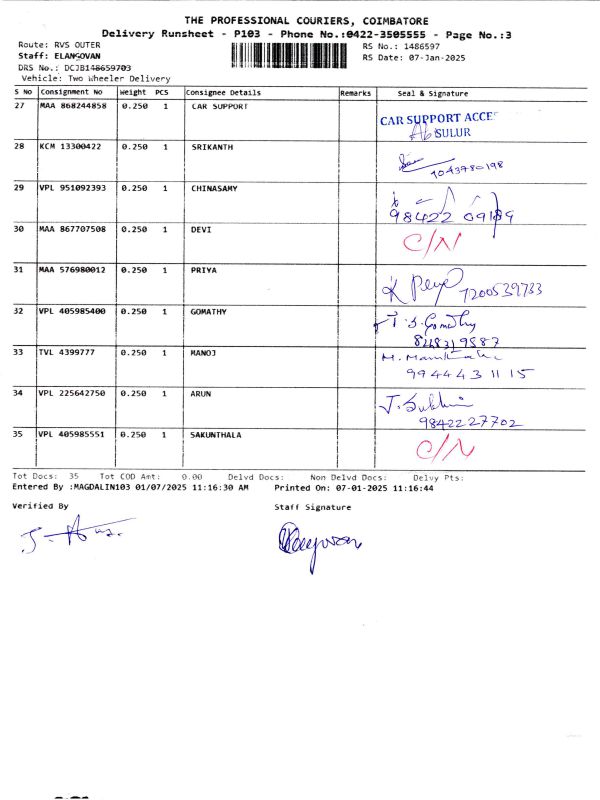 THE PROFESSIONAL COURIERS, COIMBATORE
Delivery Runsheet - P103 - Phone No.:0422-3505555 - Page No.:3
Route: RVS OUTER RS No.: 1486597
Staff: ELANGOVAN RS Date: 07-Jan-2025
DRS No.: DCJB148659703
Vehicle: Two Wheeler Delivery
S No Consignment No Weight PCS Consignee Details Remarks Seal & Signature
27 MAA 868244858 0.250 1 CAR SUPPORT
CAR SUPPORT ACCE
SULUR
28 KCM 13300422 0.250 1 SRIKANTH
29 VPL 951092393 0.250 1 CHINASAMY
98422 09189
30 MAA 867707508 0.250 1 DEVI
C/N
31 MAA 576980012 0.250 1 PRIYA
K Peye 7200539733
32 VPL 405985400 0.250 1 GOMATHY
T. S. Gomathy
8248319587
33 TVL 4399777 0.250 1 MANOJ
9944431115
34 VPL 225642750 0.250 1 ARUN
9842227702
35 VPL 405985551 0.250 1 SAKUNTHALA
C/N
Tot Docs: 35 Tot COD Amt: 0.00 Delvd Docs: Non Delvd Docs: Delvy Pts:
Entered By :MAGDALIN103 01/07/2025 11:16:30 AM Printed On: 07-01-2025 11:16:44
Verified By Staff Signature